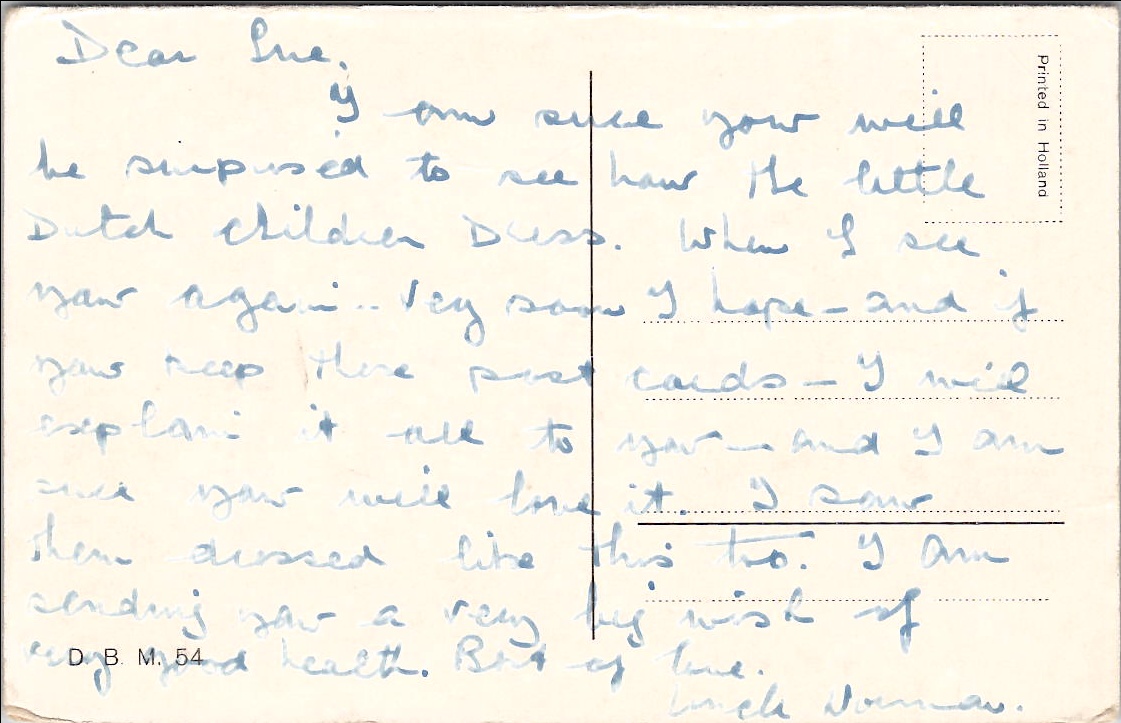 Dear Sue,
I am sure you will
be surprised to see how the little
Dutch children Dress. When I see
you again -- Very soon I hope - and if
you keep these post cards - I will
explain it all to you - and I am
sure you will love it. I saw
them dressed like this too. I am
sending you a very big wish of
very good health. Best of love.
Uncle Norman.
Printed in Holland
D. B. M. 54